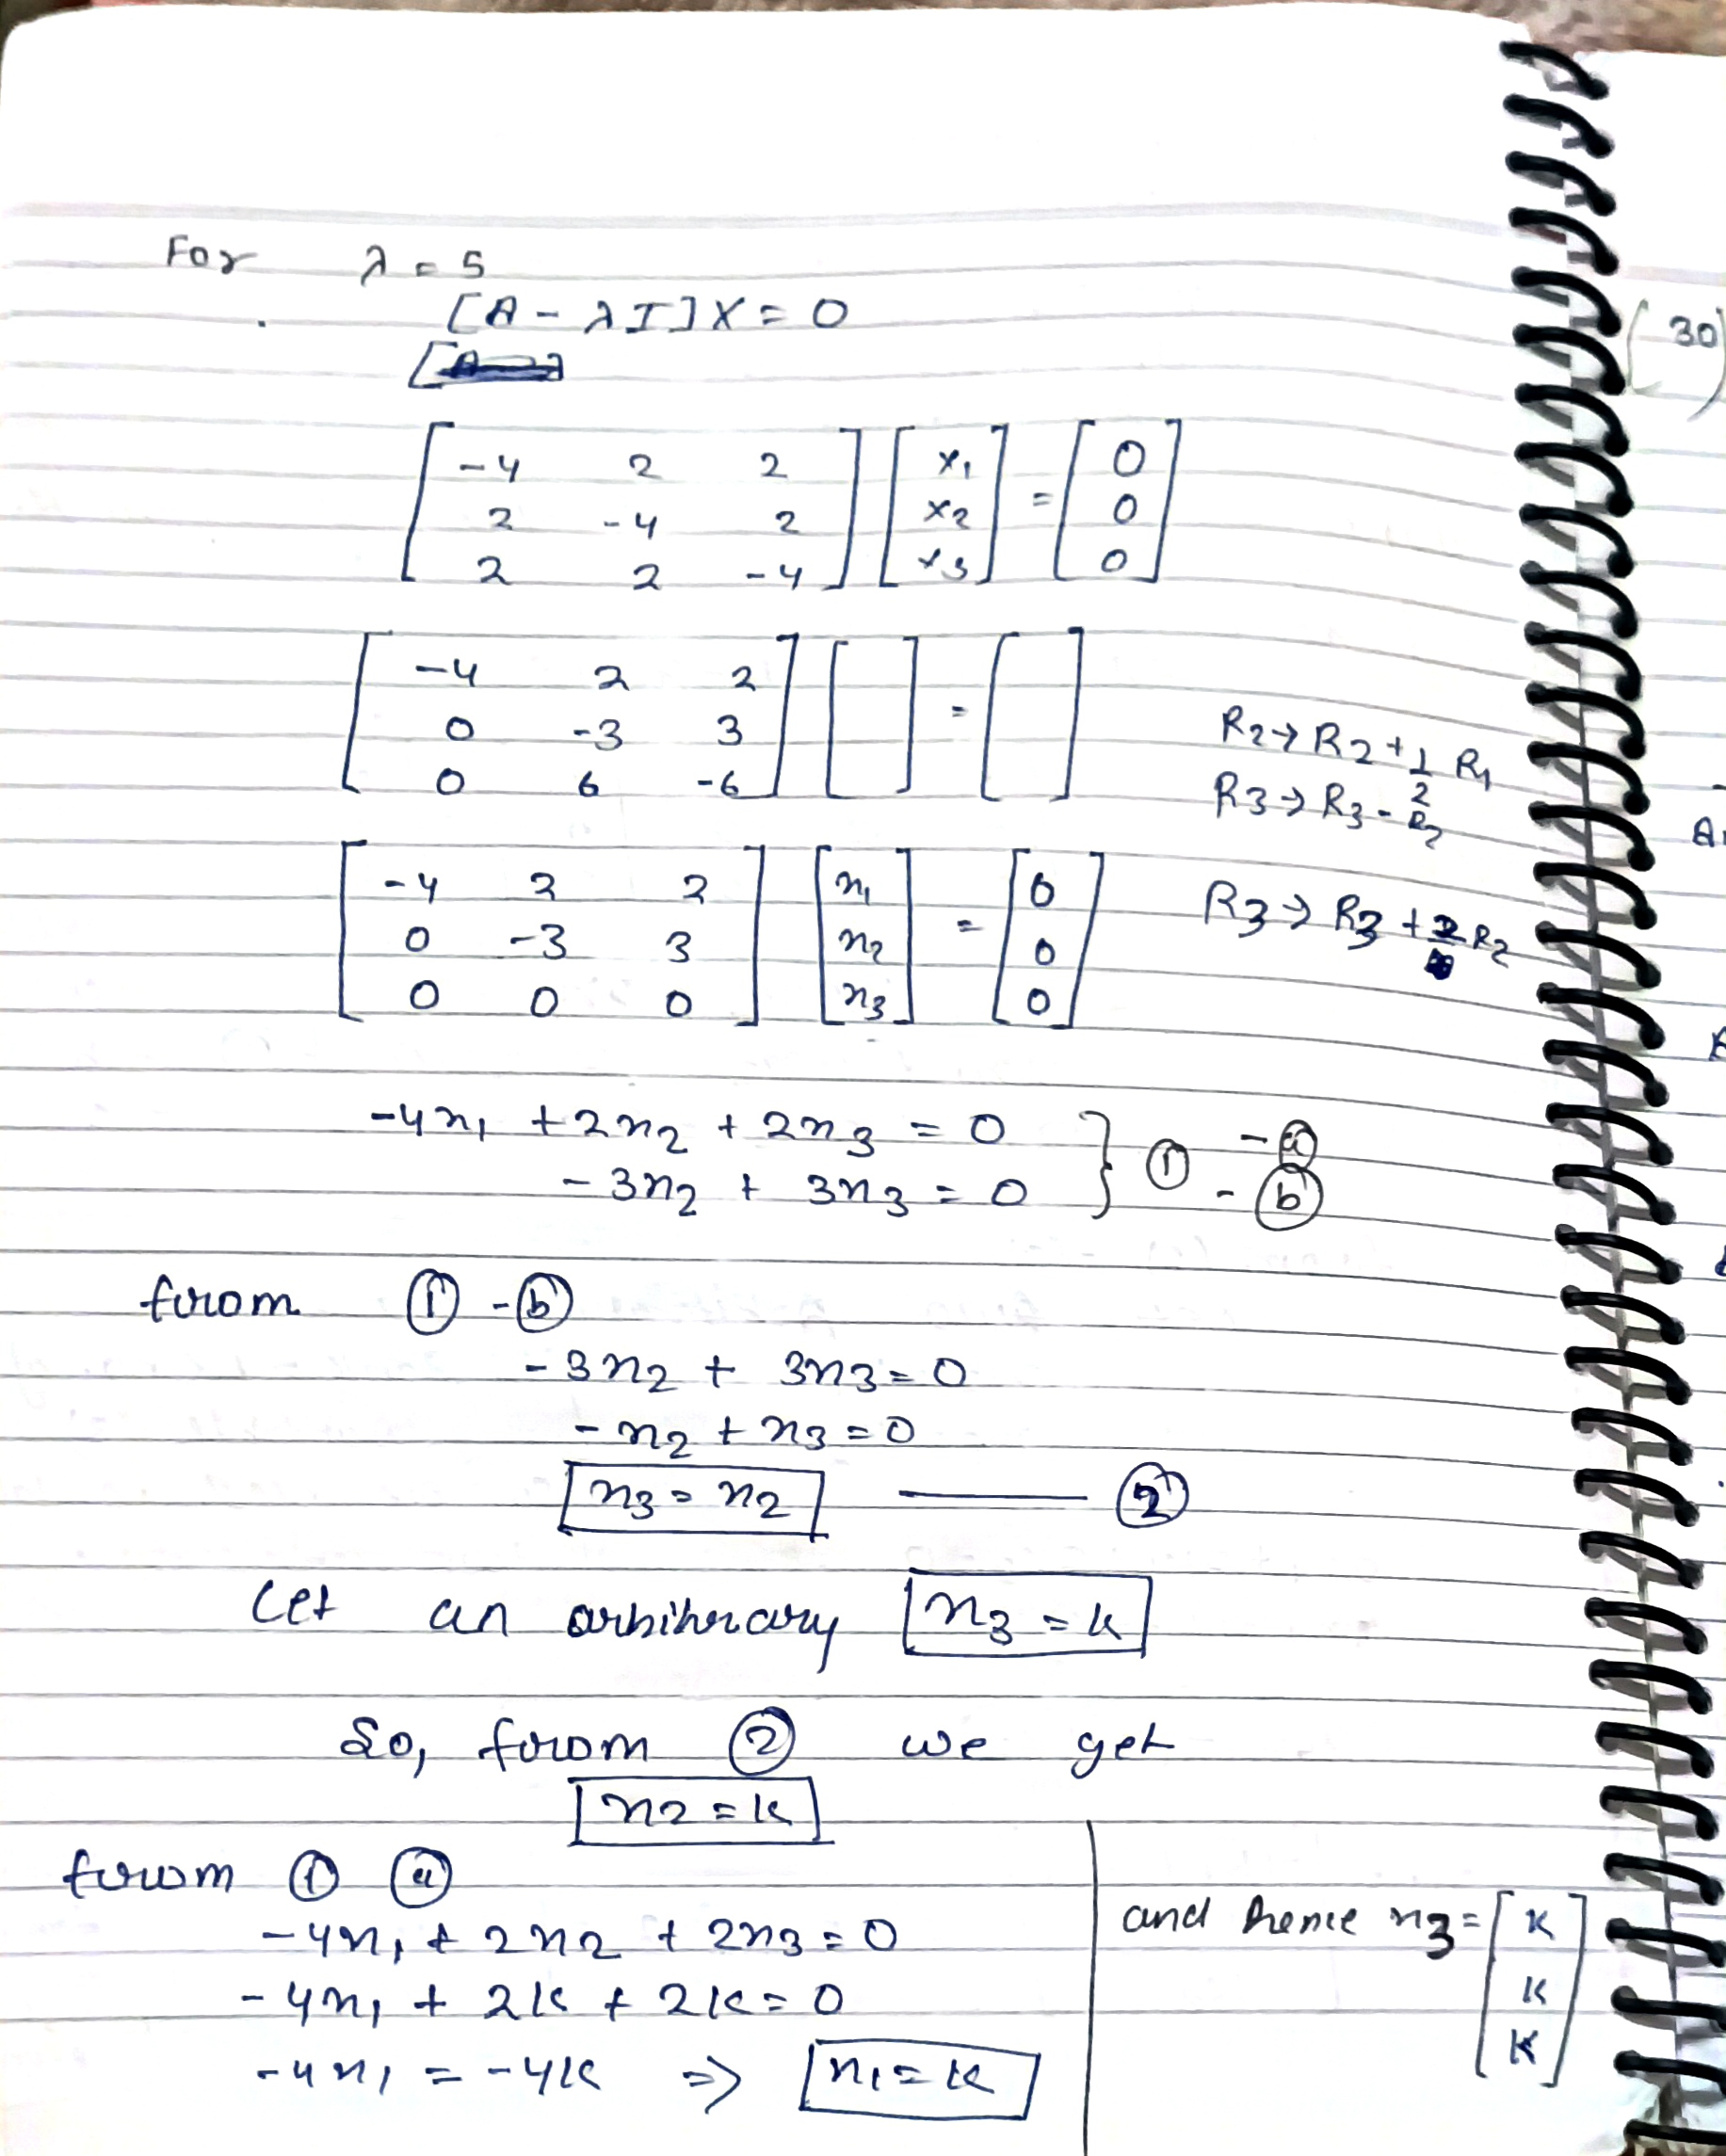 For λ = 5
[A - λI]X = 0
[ -4 2 2 ] [ x1 ] = [ 0 ]
[ 2 -4 2 ] [ x2 ] [ 0 ]
[ 2 2 -4 ] [ x3 ] [ 0 ]
[ -4 2 2 ] [ ] = [ ]
[ 0 -3 3 ] R2 → R2 + 1/2 R1
[ 0 6 -6 ] R3 → R3 - R2
[ -4 2 2 ] [ x1 ] = [ 0 ] R3 → R3 + 2R2
[ 0 -3 3 ] [ x2 ] [ 0 ]
[ 0 0 0 ] [ x3 ] [ 0 ]
-4x1 + 2x2 + 2x3 = 0 } ① - ⓐ
-3x2 + 3x3 = 0 - ⓑ
from ① - ⓑ
-3x2 + 3x3 = 0
-x2 + x3 = 0
x3 = x2 —— ②
Let an arbitrary x3 = k
So, from ② we get
x2 = k
from ① ⓐ
-4x1 + 2x2 + 2x3 = 0
-4x1 + 2k + 2k = 0
-4x1 = -4k => x1 = k
and hence x3 = [ k
k
k ]
(30)